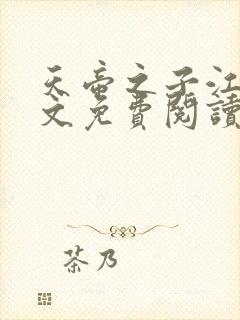 天帝之子江
文免費閱讀
茶乃